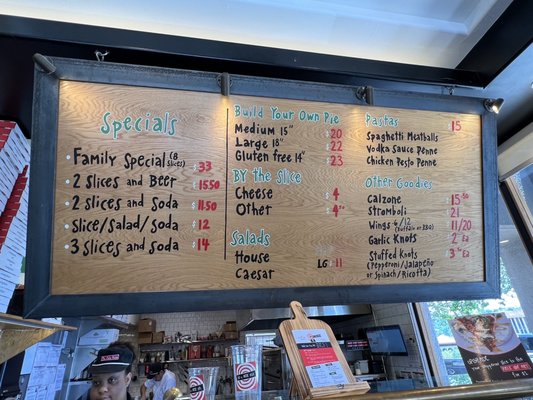 Specials
Family Special (8 slices) 33
2 Slices and Beer 15.50
2 Slices and Soda 11.50
Slice/Salad/Soda 12
3 Slices and Soda 14
Build Your Own Pie
Medium 15" 20
Large 18" 22
Gluten free 14" 23
By the Slice
Cheese 4
Other 4
Salads
House
Caesar LG 11
Pastas 15
Spaghetti Meatballs
Vodka Sauce Penne
Chicken Pesto Penne
Other Goodies
Calzone 15.50
Stromboli 21
Wings 6/12 11/20
(Buffalo or BBQ)
Garlic Knots 2 EA
Stuffed Knots 3 EA
(Pepperoni/Jalapeño
or Spinach/Ricotta)